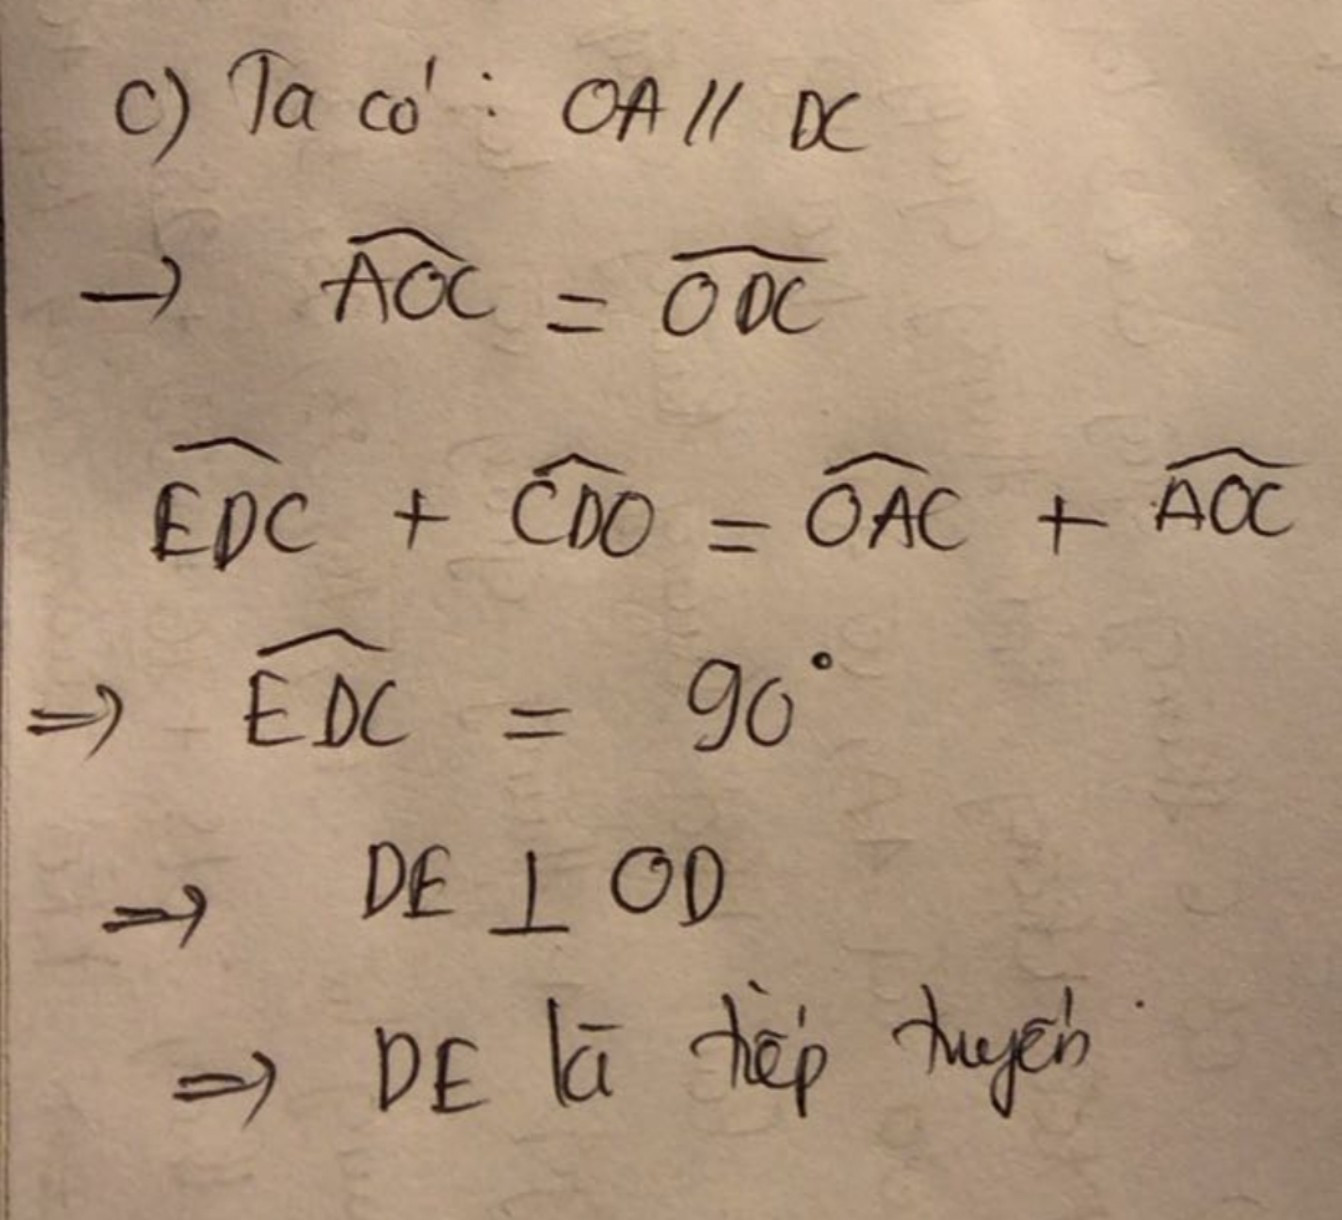 c) Ta có : OA // DC
→ \widehat{AOC} = \widehat{ODC}
\widehat{EDC} + \widehat{CDO} = \widehat{OAC} + \widehat{AOC}
⇒ \widehat{EDC} = 90°
⇒ DE ⊥ OD
⇒ DE là tiếp tuyến.